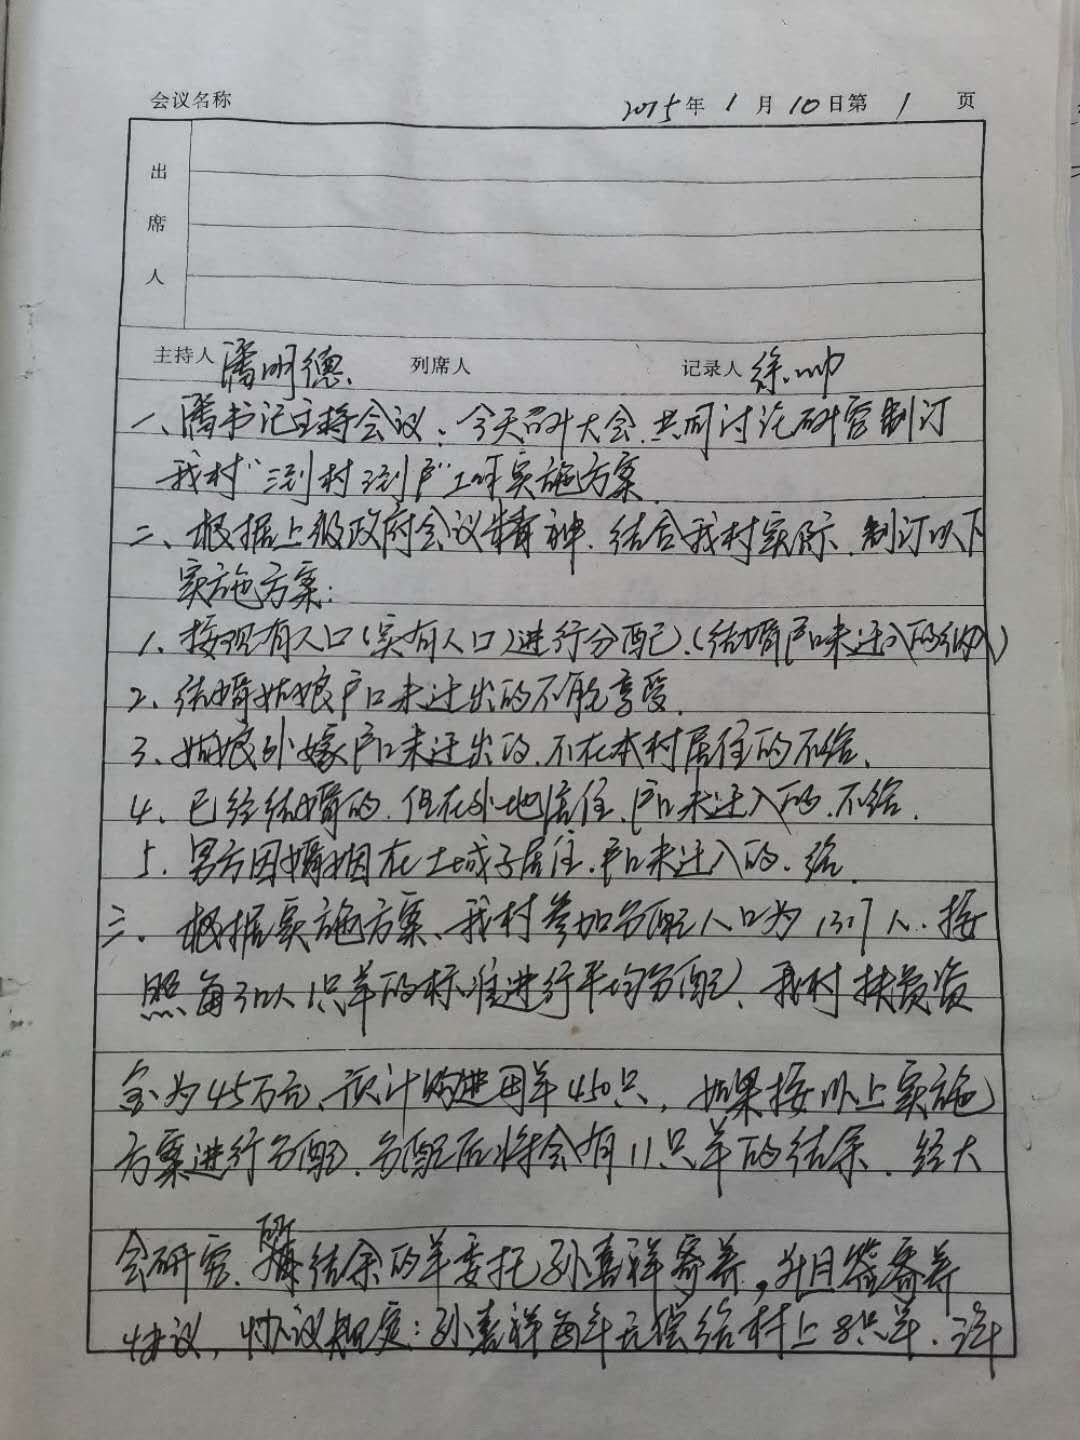 会议名称 2015年 1 月 10日第 1 页
出
席
人
主持人 潘明德 列席人 记录人 徐帅
一、潘书记主持会议：今天召开大会，共同讨论研究制订
我村“三到村三到户”工作实施方案。
二、根据上级政府会议精神，结合我村实际，制订以下
实施方案：
1、按现有人口（实有人口）进行分配，（结婚户口未迁入的纳入）
2、结婚姑娘户口未迁出的不能享受。
3、姑娘外嫁户口未迁出的，不在本村居住的不给、
4、已经结婚的，但在外地居住，户口未迁入的，不给。
5、男方因婚姻在土城子居住，户口未迁入的，给。
三、根据实施方案，我村参加分配人口为1317人，按
照每3口人1只羊的标准进行平均分配，我村扶贫资
金为45万元，预计购进母羊450只，如果按以上实施
方案进行分配，分配后将会有11只羊的结余，经大
会研究，所结余的羊委托孙喜祥寄养，并且签寄养
协议，协议规定：孙喜祥每年无偿给村上8只羊，